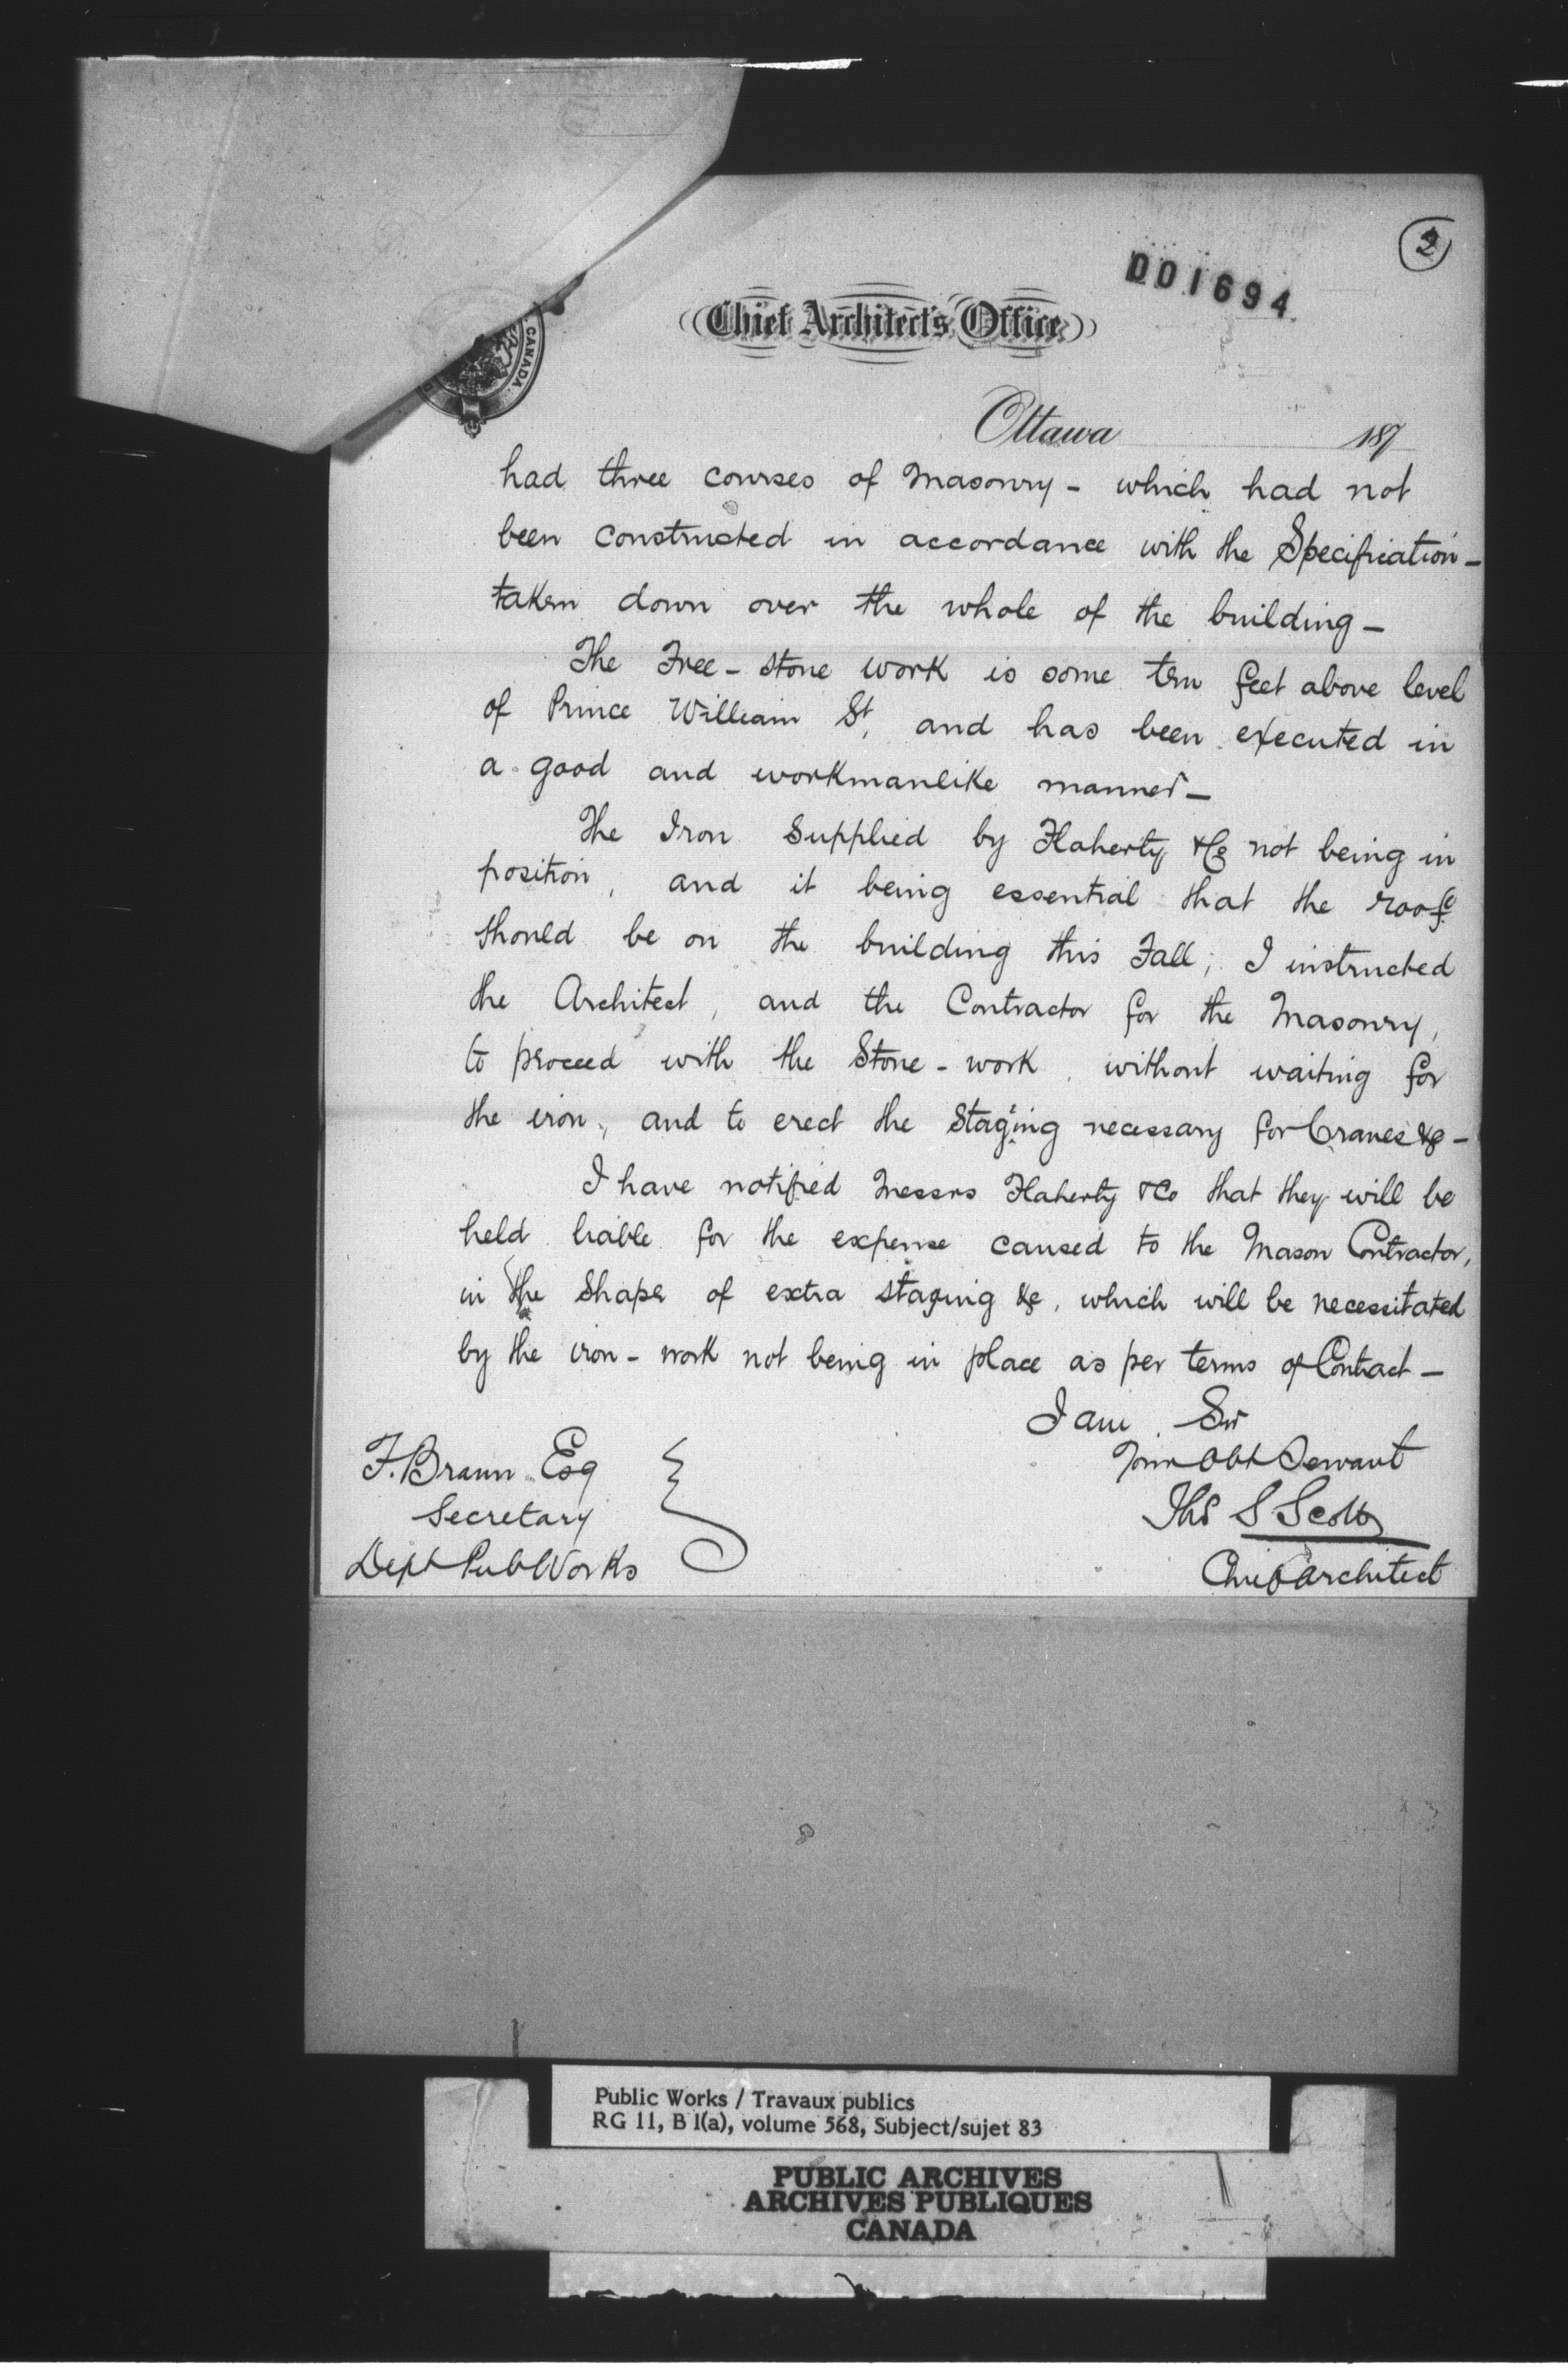 2
001694
Chief Architect's Office
CANADA
Ottawa 187
had three courses of Masonry - which had not
been constructed in accordance with the Specification -
taken down over the whole of the building -
The Free - stone work is some ten feet above level
of Prince William St, and has been executed in
a good and workmanlike manner -
The Iron supplied by Flaherty &Co not being in
position, and it being essential that the roof
should be on the building this Fall; I instructed
the Architect, and the Contractor for the Masonry,
to proceed with the Stone - work, without waiting for
the iron, and to erect the Staging necessary for Cranes &c -
I have notified Messrs Flaherty &Co that they will be
held liable for the expense caused to the Mason Contractor,
in the shape of extra staging &c, which will be necessitated
by the iron - work not being in place as per terms of Contract -
I am Sir
Your Obt Servant
Thos S Scott
Chief Architect
F. Braun Esq
Secretary
Dept Pub Works
Public Works / Travaux publics
RG 11, B 1(a), volume 568, Subject/sujet 83
PUBLIC ARCHIVES
ARCHIVES PUBLIQUES
CANADA